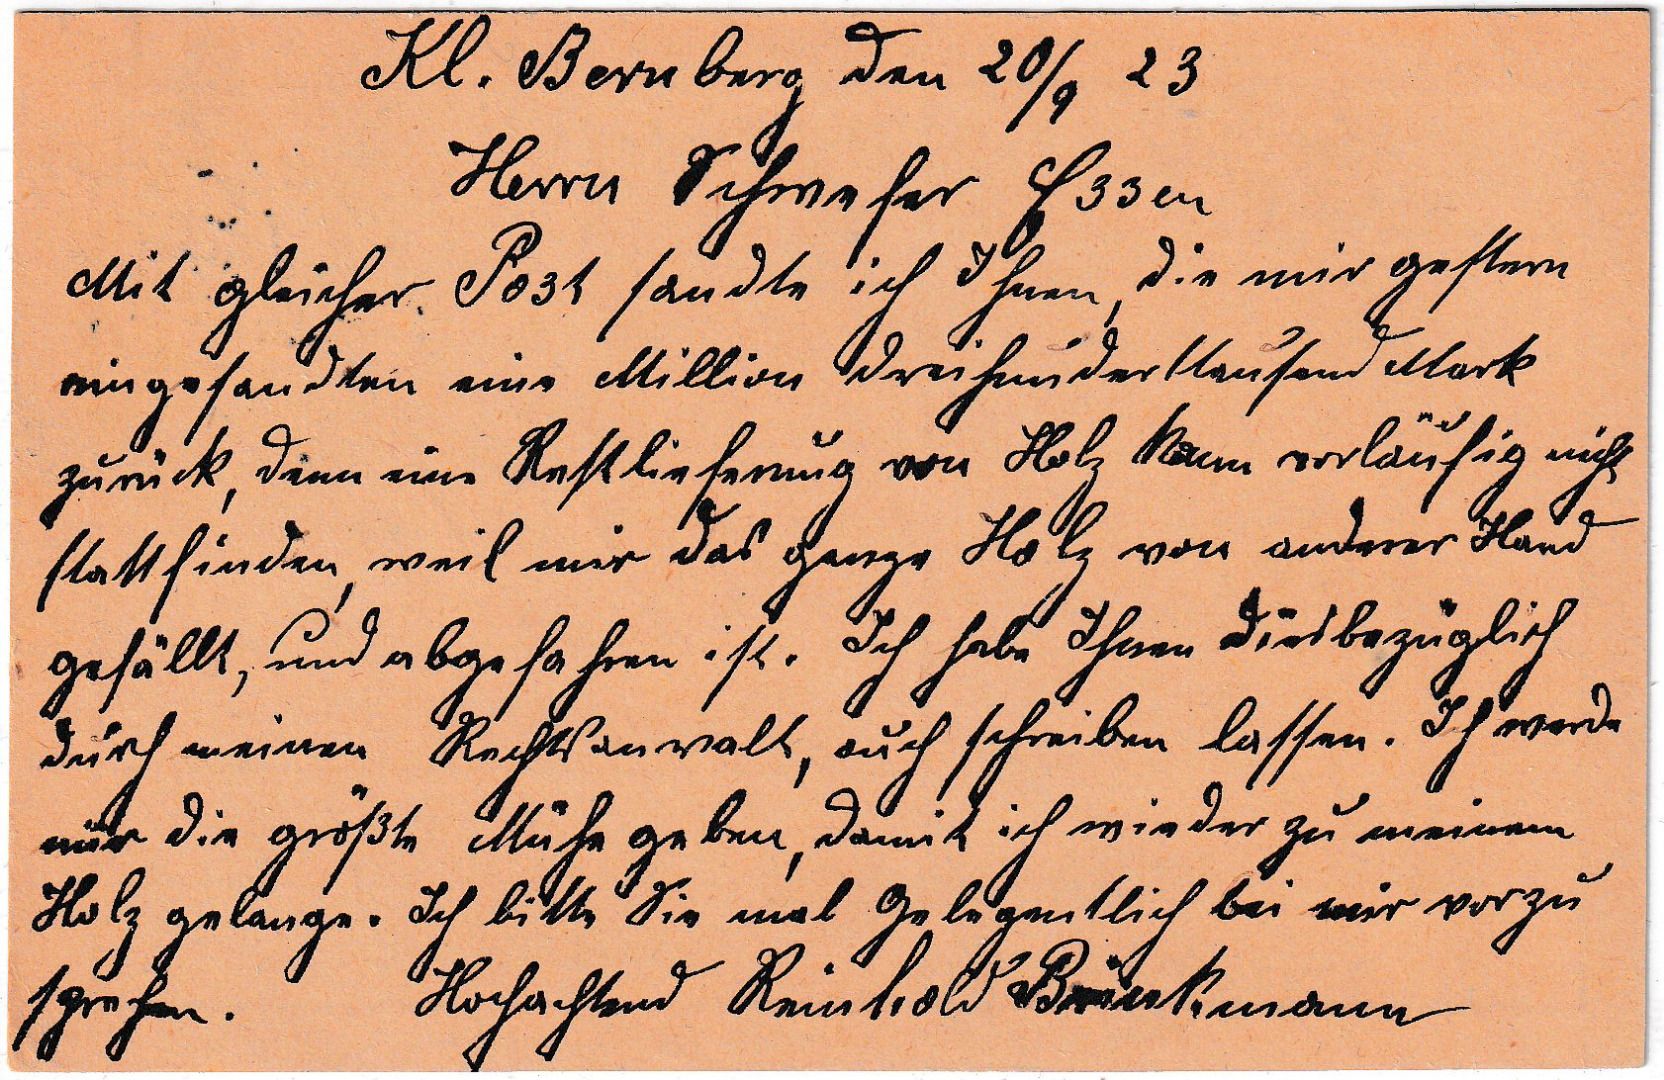 Kl. Bernberg den 20/9 23
Herrn Schwefer Essen
Mit gleicher Post sandte ich Ihnen, die mir gestern
eingesandten eine Million dreihunderttausend Mark
zurück, denn eine Restlieferung von Holz kann vorläufig nicht
stattfinden, weil mir das ganze Holz von anderer Hand
gefällt, und abgefahren ist. Ich habe Ihnen diesbezüglich
durch meinen Rechtsanwalt, auch schreiben lassen. Ich werde
mir die größte Mühe geben, damit ich wieder zu meinem
Holz gelange. Ich bitte Sie mal Gelegentlich bei mir vorzu
sprehen. Hochachtend Reinhold Brinkmann